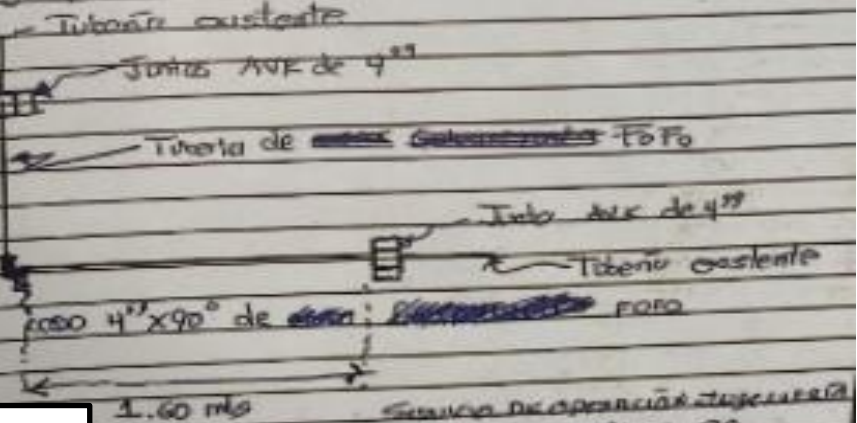 Tubería existente
Juntas AVK de 4"
Tubería de FoFo
Junta AVK de 4"
Tubería existente
Codo 4"x90° de FOFO
1.60 mts
Servicio de operación